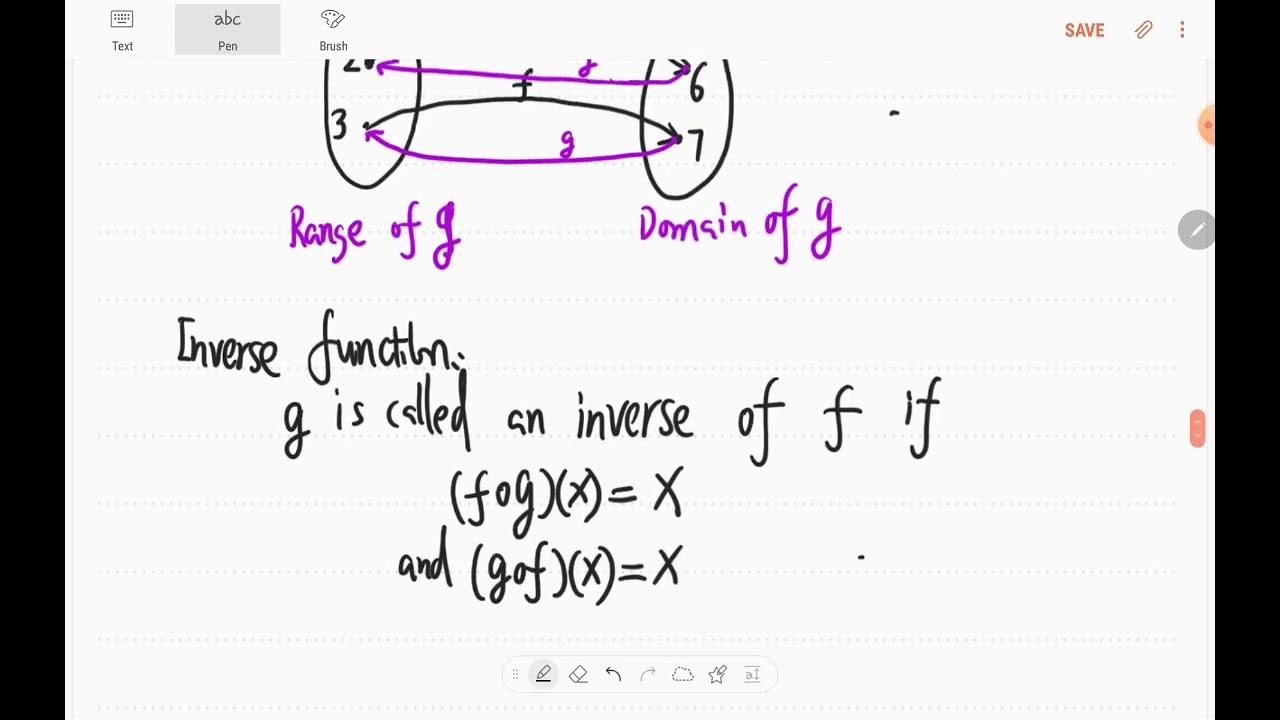 abc
SAVE
Text Pen Brush
2 g 6
f
3 g 7
Range of g Domain of g
Inverse function.
g is called an inverse of f if
(fog)(x) = X
and (gof)(x) = X
a